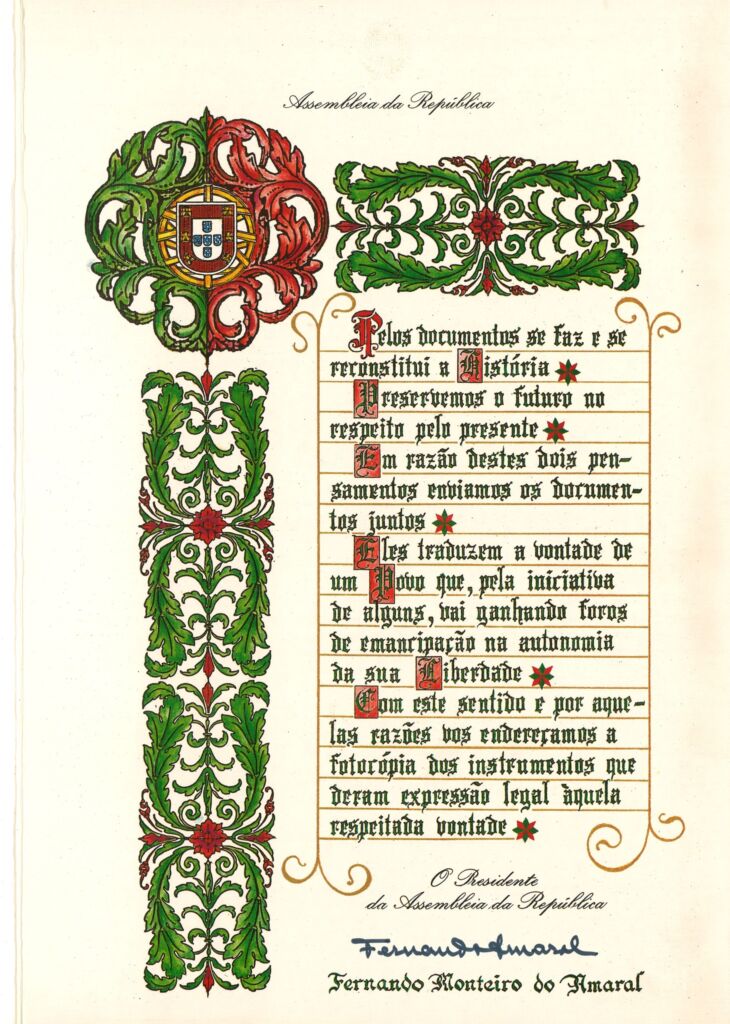 Assembleia da República
Pelos documentos se faz e se
reconstitui a História
Preservemos o futuro no
respeito pelo presente
Em razão destes dois pen-
samentos enviamos os documen-
tos juntos
Eles traduzem a vontade de
um Povo que, pela iniciativa
de alguns, vai ganhando foros
de emancipação na autonomia
da sua Liberdade
Com este sentido e por aque-
las razões vos endereçamos a
fotocópia dos instrumentos que
deram expressão legal àquela
respeitada vontade
O Presidente
da Assembleia da República
Fernando Amaral
Fernando Monteiro do Amaral